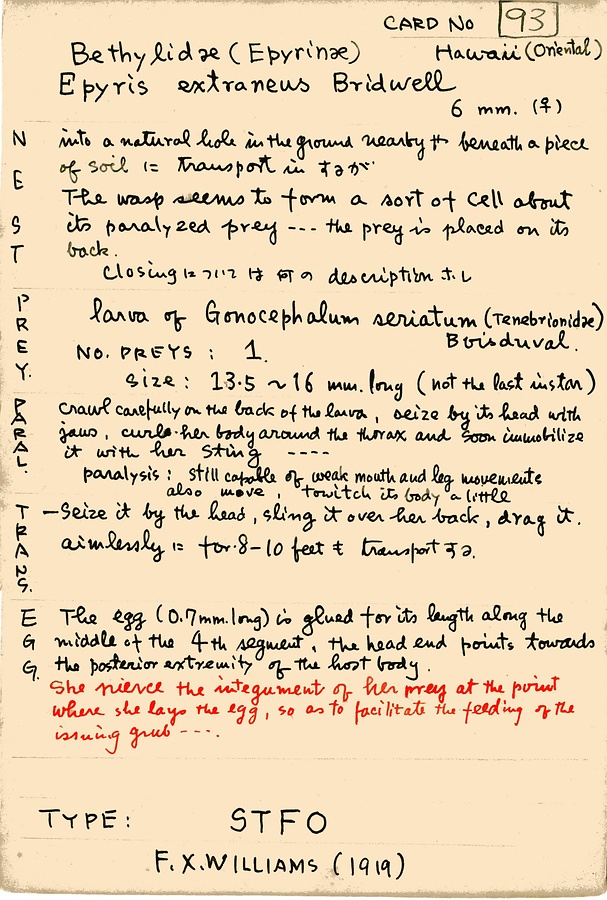 CARD No 93
Bethylidae (Epyrinae) Hawaii (Oriental)
Epyris extraneus Bridwell
6 mm. (♀)
NEST
into a natural hole in the ground nearby beneath a piece
of soil に transport in するが
The wasp seems to form a sort of cell about
its paralyzed prey --- the prey is placed on its
back.
Closing については何の description なし
PREY.
larva of Gonocephalum seriatum (Tenebrionidae)
Boisduval.
NO. PREYS : 1.
size : 13.5 ~ 16 mm. long (not the last instar)
PARAL.
crawl carefully on the back of the larva, seize by its head with
jaws, curls her body around the thorax and soon immobilize
it with her sting ----
paralysis : still capable of weak mouth and leg movements
also move, towitch its body a little
TRANS.
—Seize it by the head, sling it over her back, drag it.
aimlessly に for 8-10 feet も transport する.
EGG.
The egg (0.7mm. long) is glued for its length along the
middle of the 4th segment, the head end points towards
the posterior extremity of the host body.
She pierce the integument of her prey at the point
where she lays the egg, so as to facilitate the feeding of the
issuing grub ---.
TYPE: STFO
F.X.WILLIAMS (1919)